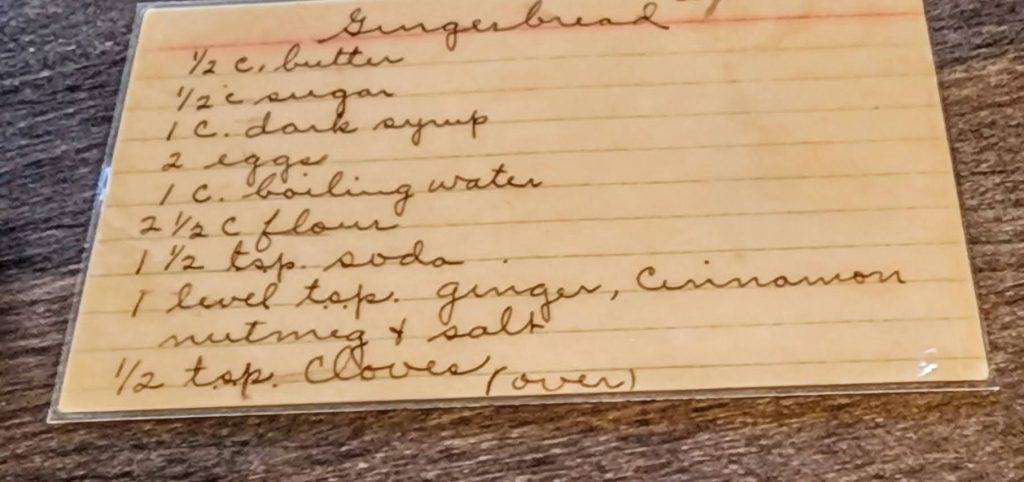 Gingerbread
1/2 c. butter
1/2 c sugar
1 c. dark syrup
2 eggs
1 c. boiling water
2 1/2 c flour
1 1/2 tsp. soda
1 level tsp. ginger, cinnamon
nutmeg & salt
1/2 tsp. cloves (over)